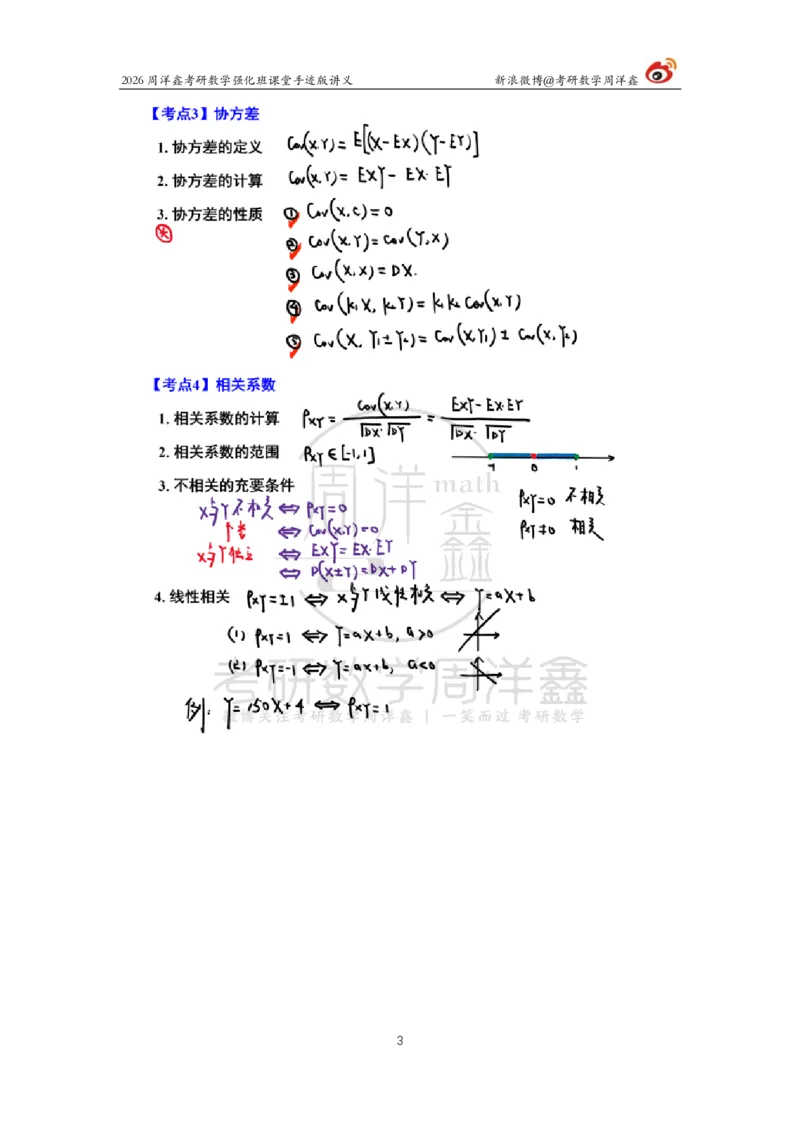 2026 周洋鑫考研数学强化班课堂手迹版讲义 新浪微博@考研数学周洋鑫
【考点3】协方差
1. 协方差的定义 Cov(X,Y)= E[(X-EX)(Y-EY)]
2. 协方差的计算 Cov(X,Y)= EXY- EX·EY
3. 协方差的性质 ① Cov(X,C)=0
② Cov(X,Y)=Cov(Y,X)
③ Cov(X,X)=DX.
④ Cov(k₁X, k₂Y)= k₁k₂Cov(X,Y)
⑤ Cov(X, Y₁±Y₂)= Cov(X,Y₁) ± Cov(X,Y₂)
【考点4】相关系数
1. 相关系数的计算 ρXY= Cov(X,Y)/√DX·√DY = EXY-EX·EY/√DX·√DY
2. 相关系数的范围 ρXY∈[-1,1] -1 0 1
3. 不相关的充要条件
ρXY=0 不相关
X与Y不相关 ⇔ ρXY=0
ρXY≠0 相关
⇔ Cov(X,Y)=0
X与Y独立 ⇔ EXY= EX·EY
⇔ D(X±Y)=DX+DY
4. 线性相关 ρXY=±1 ⇔ X与Y线性相关 ⇔ Y=aX+b
(1) ρXY=1 ⇔ Y=aX+b, a>0
(2) ρXY=-1 ⇔ Y=aX+b, a<0
例: Y=150X+4 ⇔ ρXY=1
周洋鑫 math
考研数学周洋鑫
微博关注考研数学周洋鑫 | 一笑而过 考研数学
3